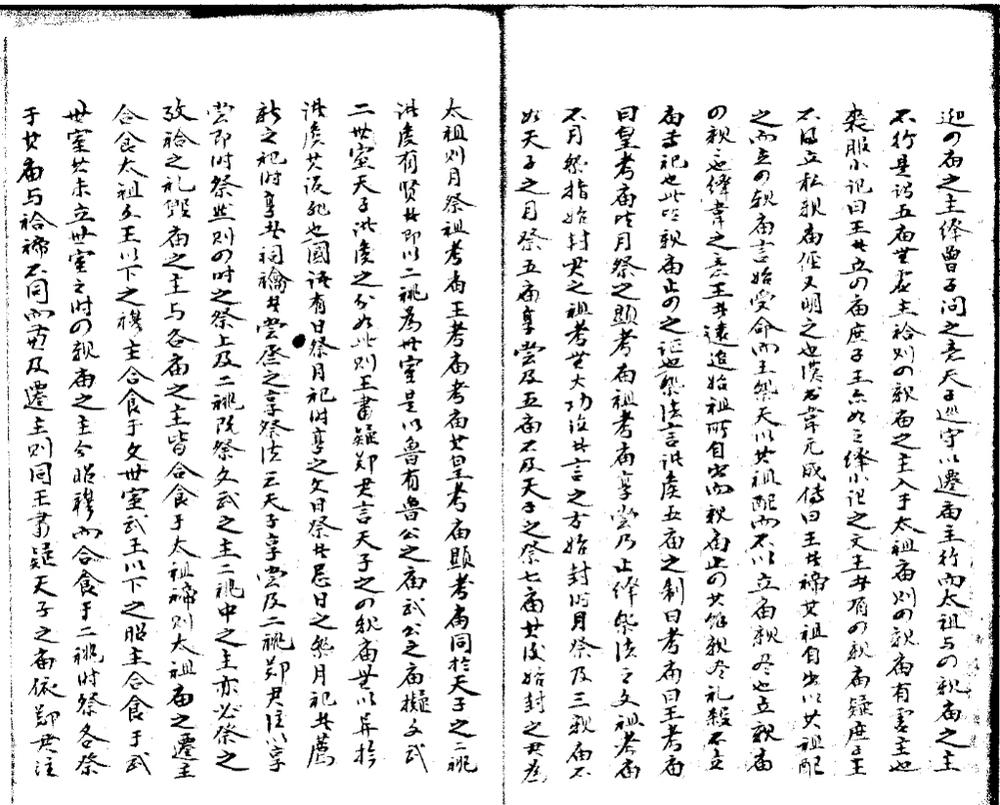 迎の廟之主絳曽子問之意天子巡守以遷廟主行而太祖与の親廟之主
不行是謂五廟無虛主祫則の親廟之主入于太祖廟則の親廟有虛主也
喪服小記曰王者立の廟庶子王亦如之絳小記之文王者有の親廟疑庶子王
不得立私親廟经又明之也漢書韋元成傳曰王者禘其祖自出以其祖配
之而立の親廟言始受命而王祭天以其祖配而不以立廟親尽也立親廟
の親〻也絳韋之意王者遠追始祖所自出而親廟止の其餘親尽礼殺不立
廟等祀也此皆親廟止の之证也祭法言諸侯五廟之制曰考廟曰王考廟
曰皇考廟皆月祭之顯考廟祖考廟享尝乃止絳祭法之文祖考廟
不月祭指始封君之祖考無大功後者言之方始封時月祭及三親廟不
如天子之月祭五廟享尝及五廟不及天子之祭七廟其後始封之君爲
太祖则月祭祖考廟王考廟考廟其皇考廟顯考廟同於天子之二祧
諸侯有賢者即以二祧為世室是以魯有魯公之廟武公之廟擬文武
二世室天子諸侯之分如此則王肅疑郑君言天子之の親廟無以异於
諸侯其误殆也國语有日祭月祀时享之文日祭者忌日之祭月祀者薦
新之祀时享者祠禴者尝烝之享祭法云天子享尝及二祧郑君注以享
尝即时祭然则の时之祭上及二祧既祭文武之主二祧中之主亦必祭之
攷祫之礼毀廟之主与各廟之主皆合食于太祖禘则太祖廟之遷主
合食太祖文王以下之穆主合食于文世室武王以下之昭主合食于武
世室其未立世室之时の親廟之主今昭穆而合食于二祧时祭各祭
于其廟与祫禘不同而廟及遷主则同王肃疑天子之廟依郑君注